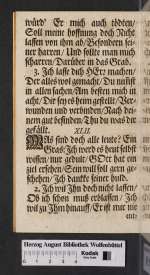 würd' Er mich auch tödten/
Soll meine hoffnung doch Nicht
lassen von ihm ab/ Besondern sei-
ner harren/ Und sollte man mich
scharren/ Darüber in das Grab.
3. Ich lasse dich HErr machen/
Der alles wol gemacht/ Du
in allen sachen/ Am besten mich in
acht/ Dir sey es heim gestellt/ Ver-
wunden und verbinden/ Nach dei-
nem gut befinden/ Thu du was dir
gefällt.
XLII.
WAs sind doch alle leute? Ein
Gras/ Ich werd es heut selbst
wissen/ nur gedult/ GOtt hat ein
ziel ersehen/ Sein will soll gern ge-
schehen/ Ich dancke seiner huld.
2. Ich wil Ihn doch nicht lassen/
Ob ich schon muß erblassen/ Ich
wil zu Ihm hinauff/ Er ist mir
Herzog August Bibliothek Wolfenbüttel
Kodak